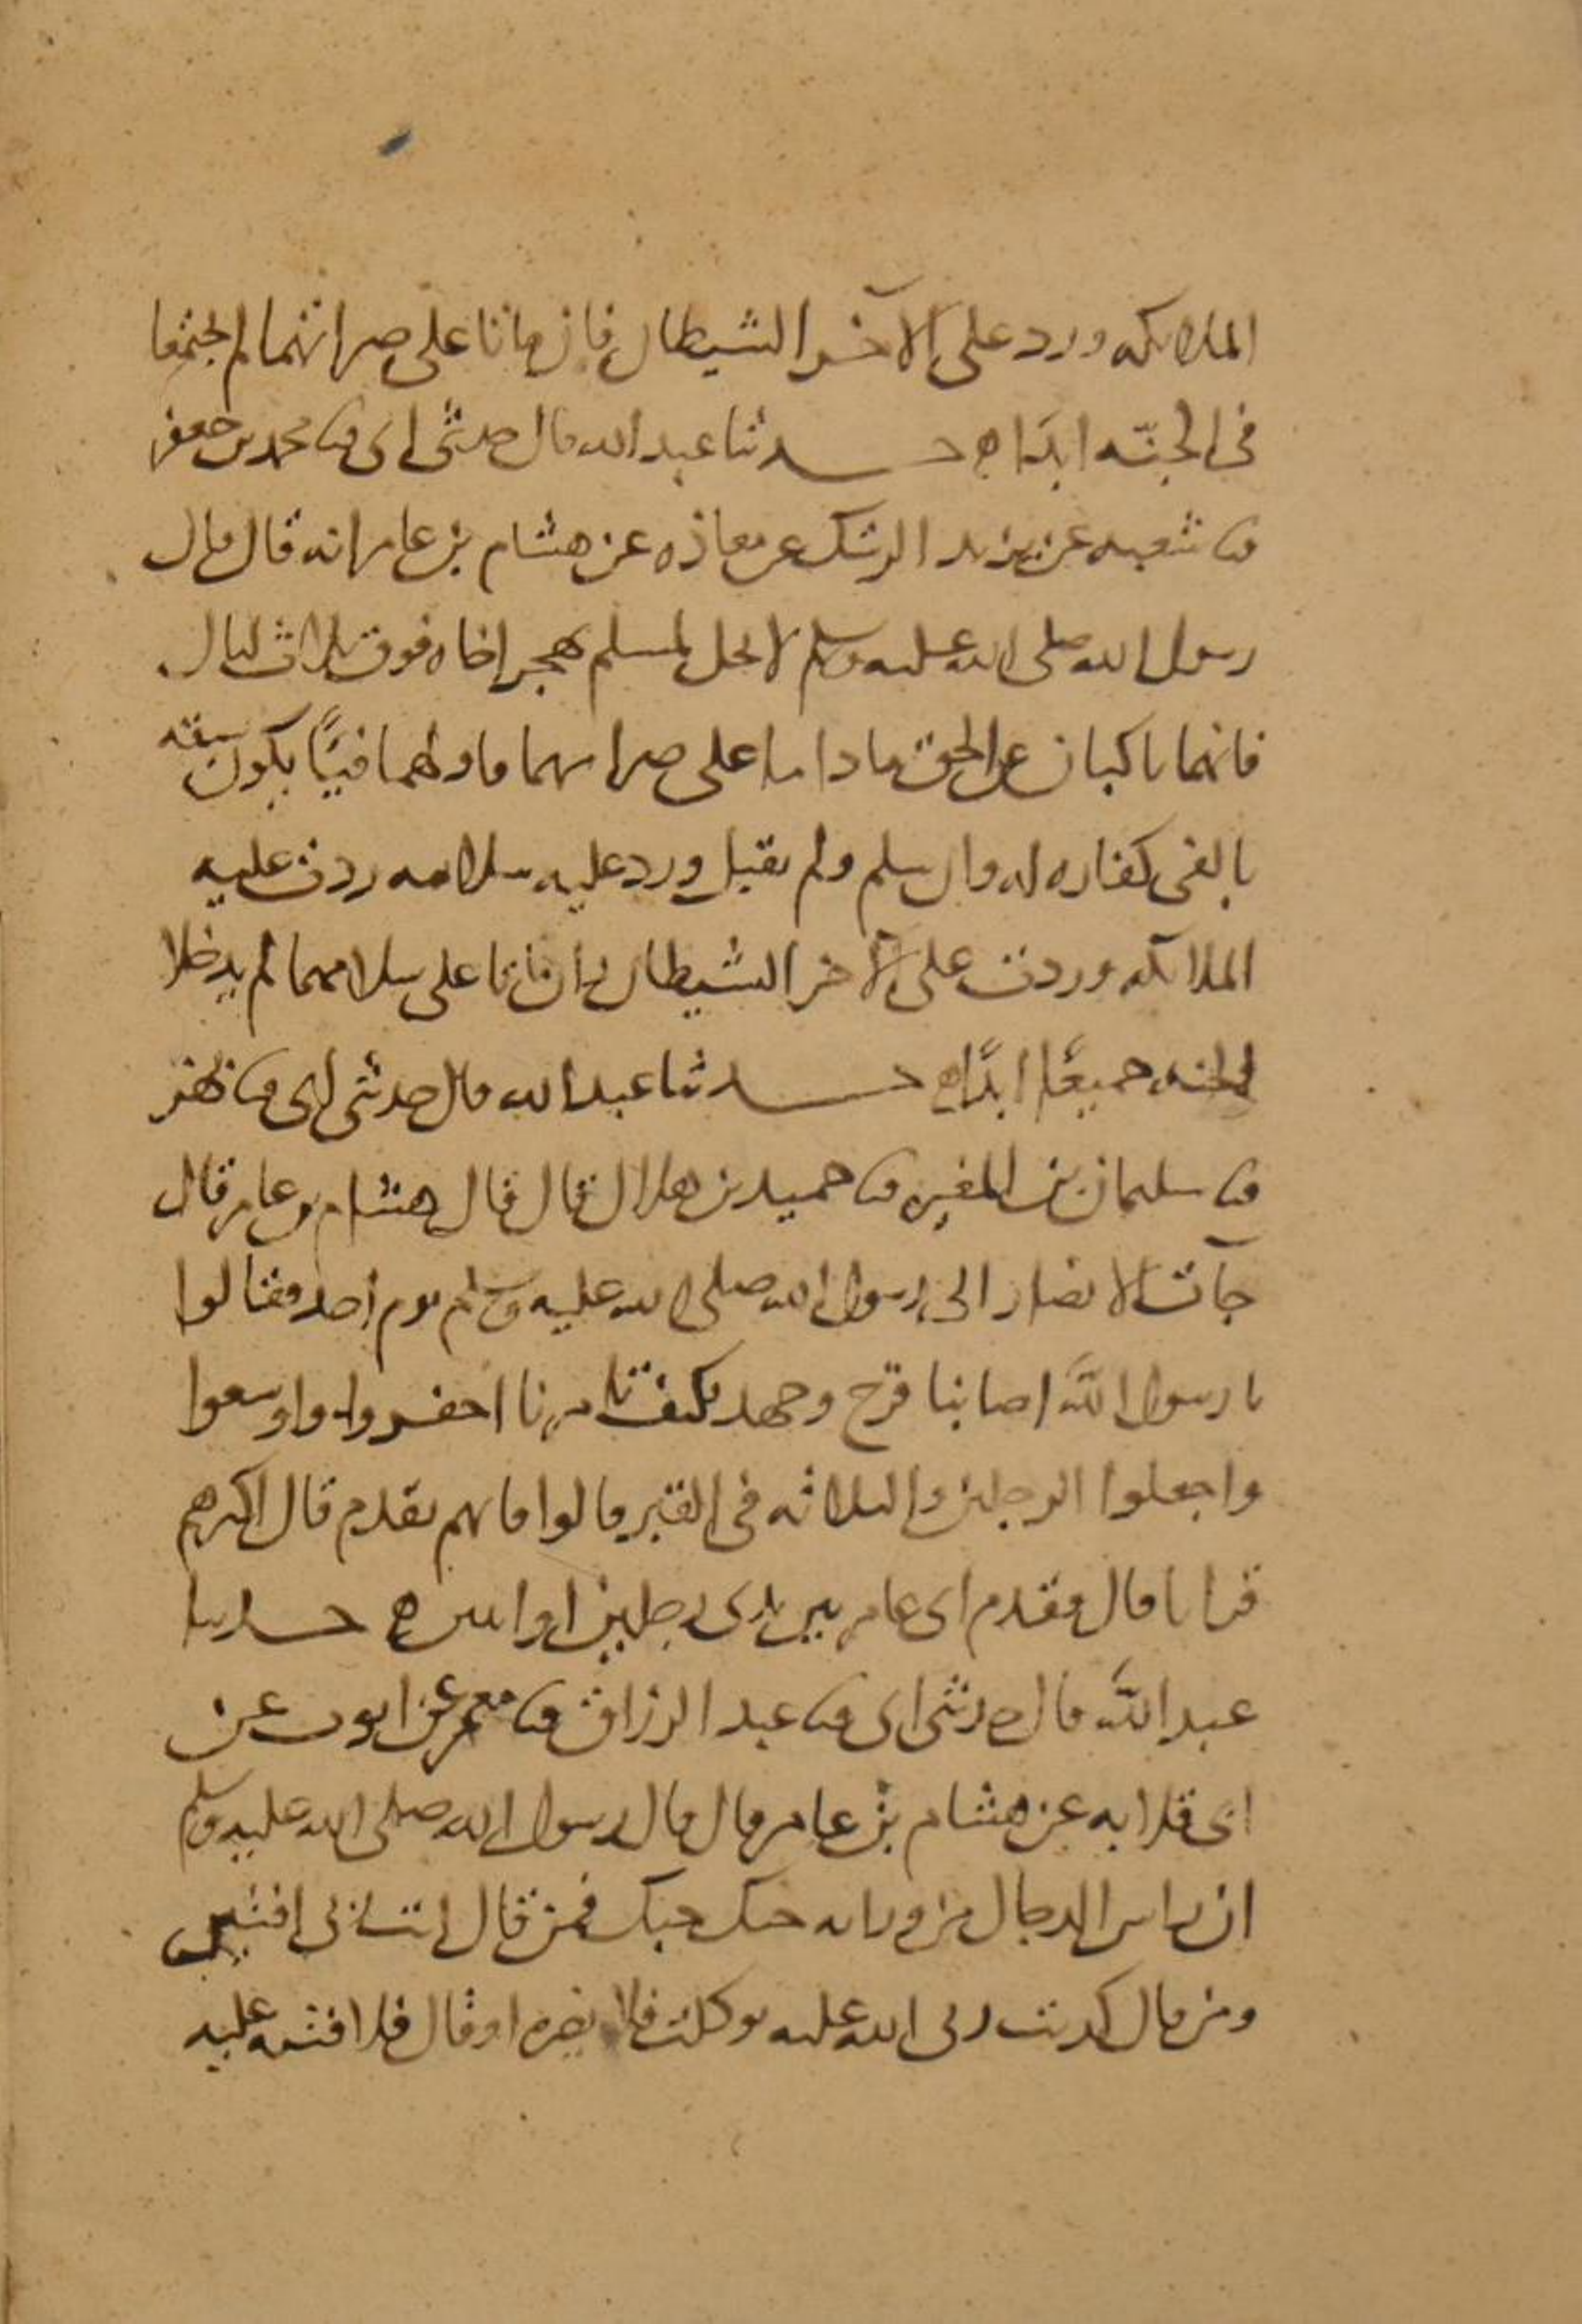 الملائكه ورد على الآخر الشيطان فان ماتا على صرامهما لم يجتمعا
في الجنّه ابدًا ه حدثنا عبد الله قال حدثني ابي ثنا محمد بن جعفر
ثنا شعبه عن يزيد الرشك عن معاذه عن هشام بن عامر انه قال قال
رسول الله صلى الله عليه وسلم لا يحل لمسلم يهجر اخاه فوق ثلاث ليال
فانهما ناكبان عن الحق ما داما على صرامهما فاولهما فيئًا يكون سبقه
بالفي كفاره له وان سلم ولم يقبل ورد عليه سلامه ردت عليه
الملائكه وردت على الآخر الشيطان وان ماتا على صرامهما لم يدخلا
الجنه جميعًا ابدًا ه حدثنا عبد الله قال حدثني ابي ثنا بهز
ثنا سليمان بن المغيره ثنا حميد بن هلال قال قال هشام بن عامر قال
جآت الانصار الى رسول الله صلى الله عليه وسلم يوم احد فقالوا
يا رسول الله اصابنا قرح وجهد فكيف تامرنا احفروا واوسعوا
واجعلوا الرجلين والثلاثه في القبر قالوا فايهم نقدم قال اكثرهم
قرانا قال فقدم ابي عامر بين يدي رجلين او اثنين ه حدثنا
عبد الله قال حدثني ابي ثنا عبد الرزاق ثنا معمر عن ايوب عن
ابي قلابه عن هشام بن عامر قال قال رسول الله صلى الله عليه وسلم
ان راس الدجال من ورائه حبك حبك فمن قال انت ربي افتتن
ومن قال كذبت ربي الله عليه توكلت فلا يضره او قال فلا فتنه عليه